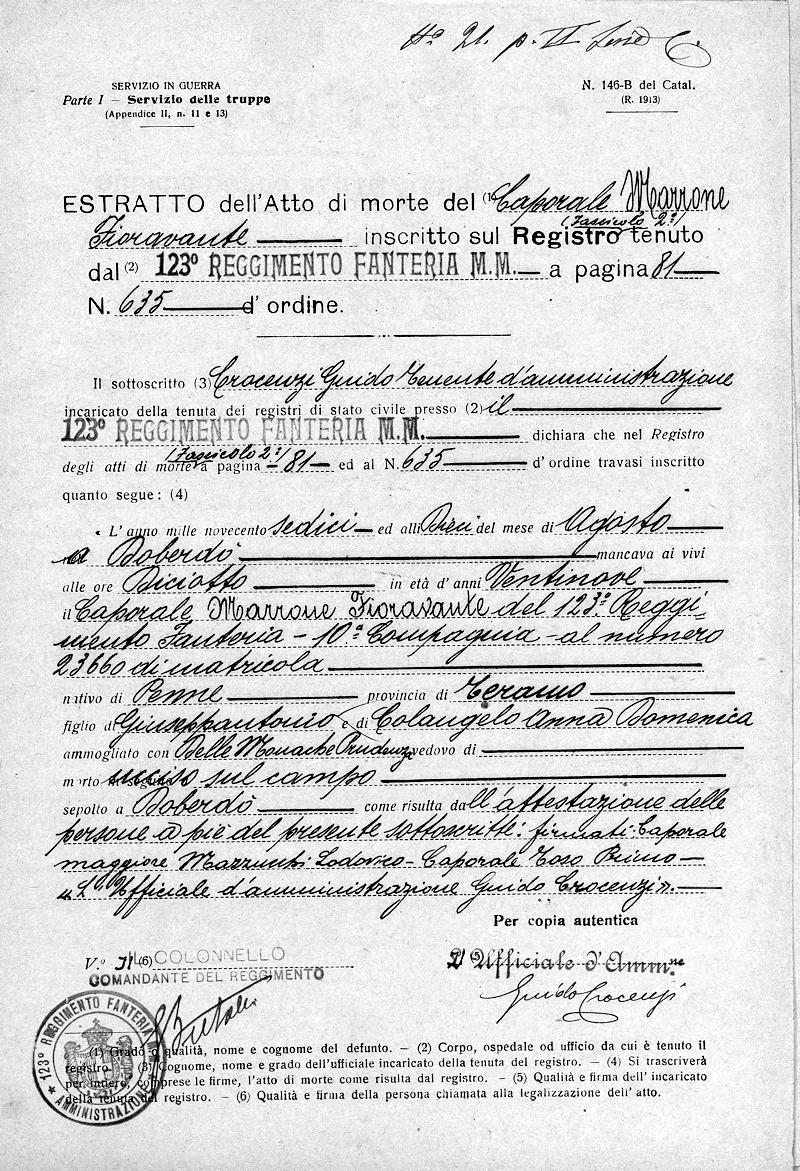 Nº 21. p. II Serie C.
SERVIZIO IN GUERRA
Parte I — Servizio delle truppe
(Appendice II, n. 11 e 13)
N. 146-B del Catal.
(R. 1913)
ESTRATTO dell'Atto di morte del (1) Caporale Marrone
(Fascicolo 2º)
Fioravante inscritto sul Registro tenuto
dal (2) 123º REGGIMENTO FANTERIA M.M. a pagina 81
N. 635 d'ordine.
Il sottoscritto (3) Crocenzi Guido Tenente d'amministrazione
incaricato della tenuta dei registri di stato civile presso (2) il
123º REGGIMENTO FANTERIA M.M. dichiara che nel Registro
(Fascicolo 2º)
degli atti di morte a pagina 81 ed al N. 635 d'ordine travasi inscritto
quanto segue: (4)
« L'anno mille novecento sedici ed alli Dieci del mese di Agosto
a Doberdò mancava ai vivi
alle ore Diciotto in età d'anni Ventinove
il Caporale Marrone Fioravante del 123º Reggi
mento Fanteria - 10ª Compagnia - al numero
23660 di matricola
nativo di Penne provincia di Teramo
figlio di Giuseppantonio e di Colangelo Anna Domenica
ammogliato con Delle Monache Prudenz vedovo di
morto ucciso sul campo
sepolto a Doberdò come risulta dall'attestazione delle
persone a piè del presente sottoscritte: firmati: Caporale
maggiore Mazzucchi Lodovico - Caporale Toso Primo -
« L'Ufficiale d'amministrazione Guido Crocenzi ».
Per copia autentica
V.º Il (6) IL COLONNELLO
COMANDANTE DEL REGGIMENTO
L'Ufficiale d'Amm.ne
Guido Crocenzi
123º REGGIMENTO FANTERIA
AMMINISTRAZIONE
(1) Grado o qualità, nome e cognome del defunto. — (2) Corpo, ospedale od ufficio da cui è tenuto il
registro. — (3) Cognome, nome e grado dell'ufficiale incaricato della tenuta del registro. — (4) Si trascriverà
per intiero, comprese le firme, l'atto di morte come risulta dal registro. — (5) Qualità e firma dell'incaricato
della tenuta del registro. — (6) Qualità e firma della persona chiamata alla legalizzazione dell'atto.